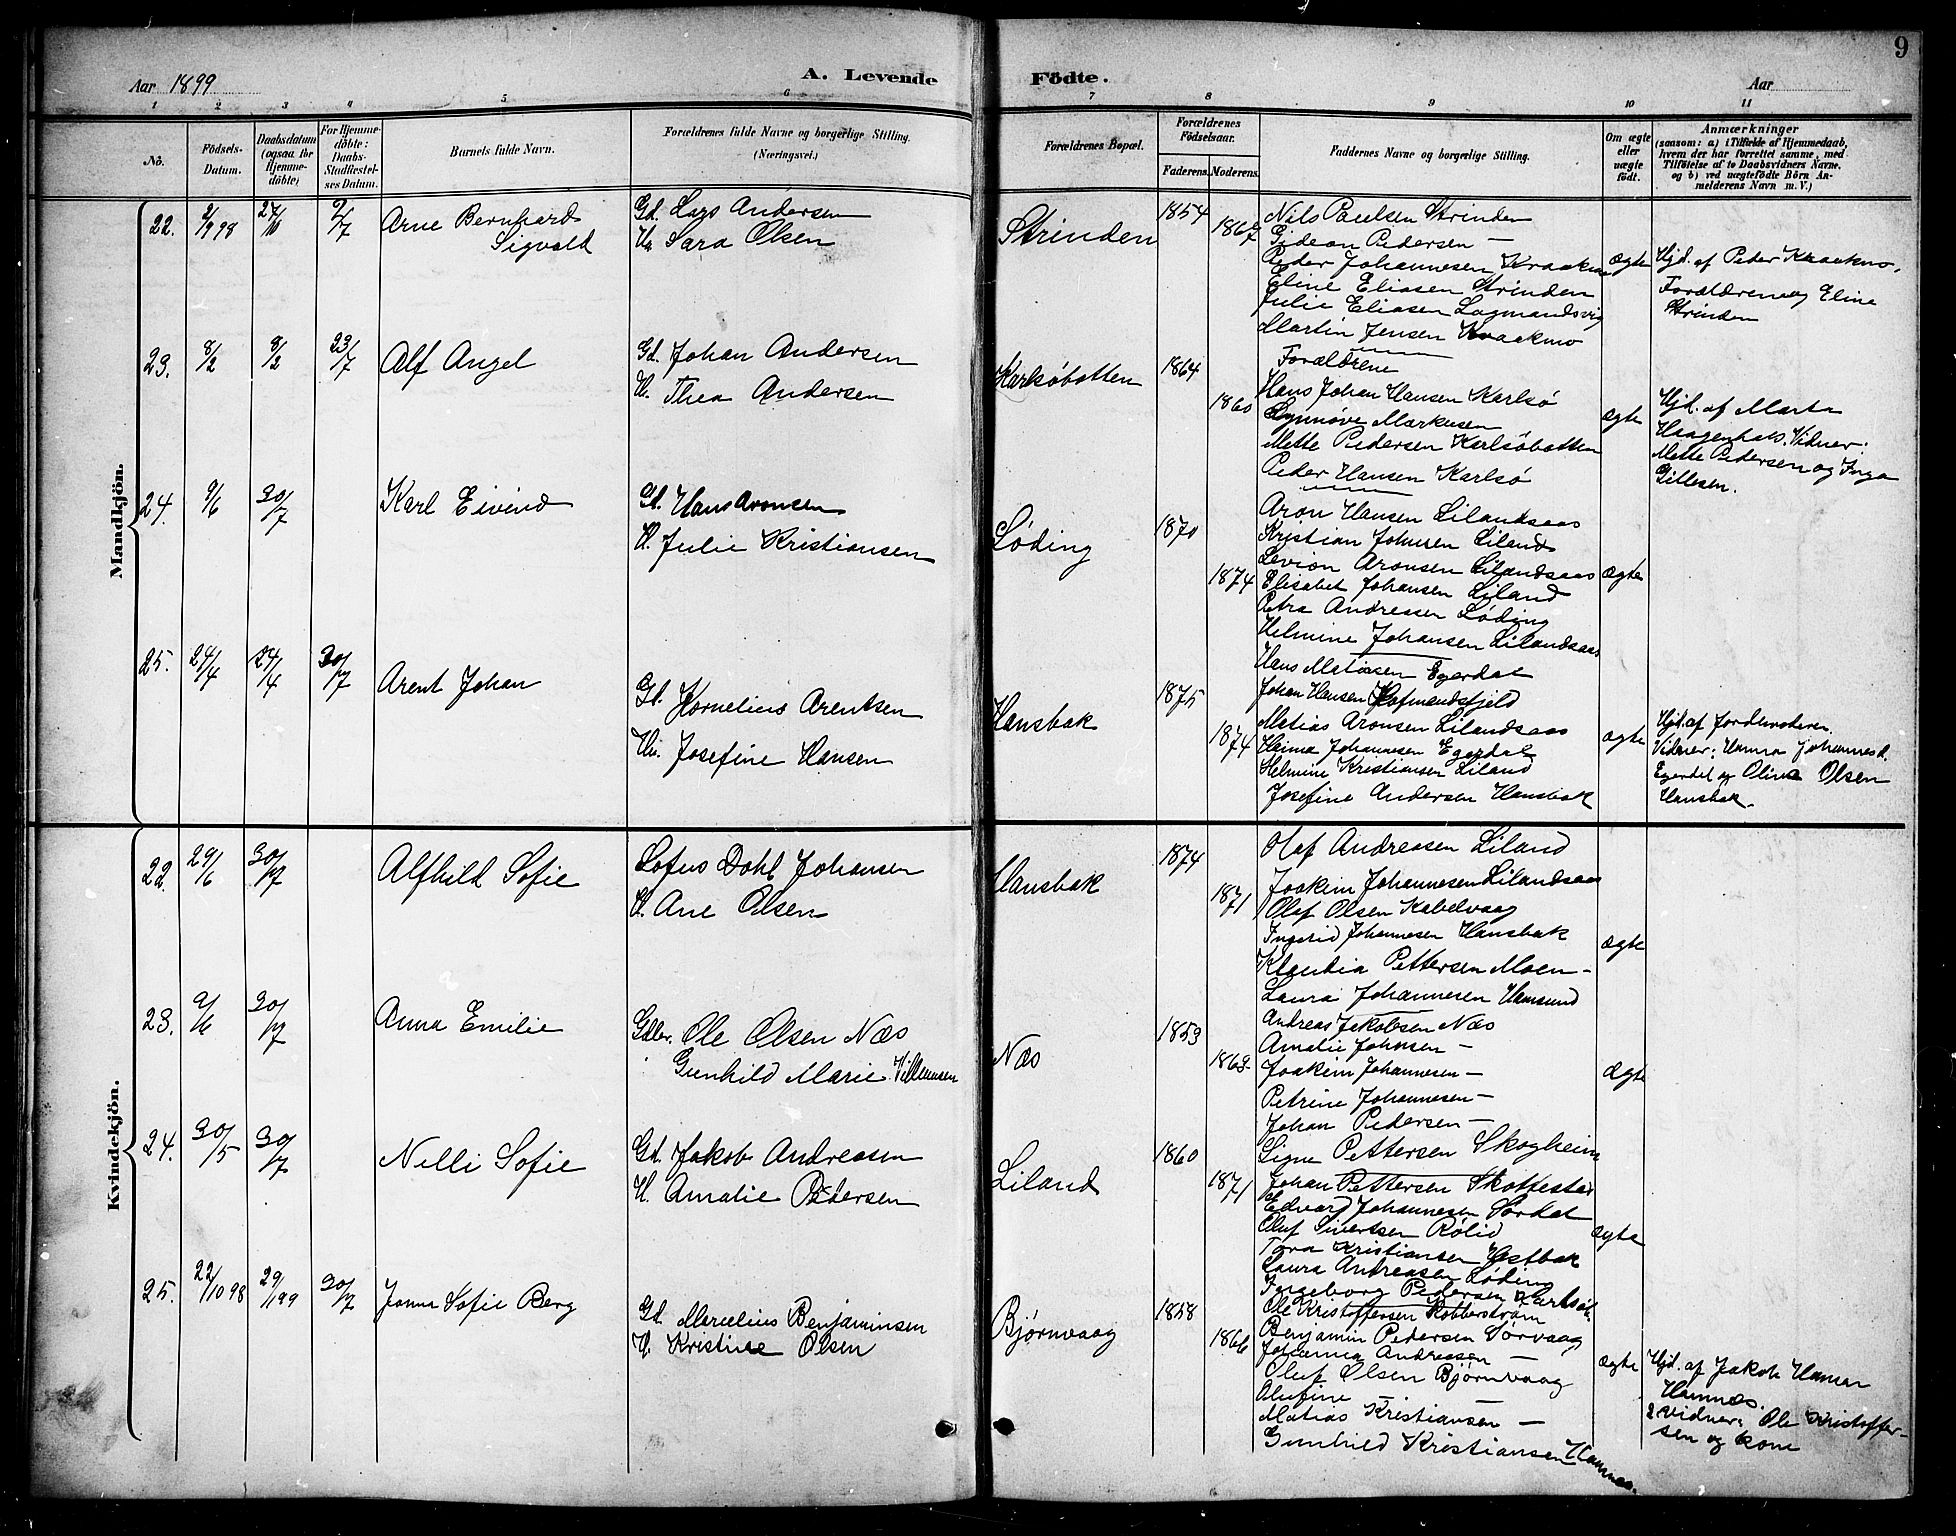 9
Aar 1899
A. Levende
Födte.
Aar
1 2 3 4 5 6 7 8 9 10 11
No.
Födsels-
Datum.
Daabsdatum
(ogsaa for
Hjemme-
döbte)
For Hjemme-
döbte:
Daabs-
Stadfæstel-
ses Datum.
Barnets fulde Navn.
Forældrenes fulde Navne og borgerlige Stilling.
(Næringsvei.)
Forældrenes Bopæl.
Forældrenes
Födselsaar.
Faderens. Moderens.
Faddernes Navne og borgerlige Stilling.
Om ægte
eller
uægte
födt.
Anmærkninger
(saasom: a) i Tilfælde af Hjemmedaab,
hvem der har forrettet samme, med
Tilföielse af to Daabsvidners Navne,
og b) ved uægtefödte Börn An-
melderens Navn m. V.)
Mandkjön.
22. 2/9 98 27/10 9/7 Arne Bernhard
Sigvald
Gd. Lars Andersen
Hu Sara Olsen
Strinden
1854
1867
Nils Paulsen Strinden
Gideon Pedersen —
Peder Johannesen Kraakmo
Eline Eliasen Strinden
Julie Eliasen Lagmandsvig
Martin Jensen Kraakmo
ægte
Hjd. af Peder Kraakmo,
Forældrene og Eline
Strinden
23. 8/2 8/2 23/7 Alf Angel
Gd. Johan Andersen
H. Thea Andersen
Karlsöbotten
1864
1860
Forældrene
Hans Johan Hansen Karlsö
Synnöve Markusen
Mette Pedersen Karlsöbotten
Peder Hansen Karlsö
ægte
Hjd. af Marta
Haagenhals. Vidner:
Mette Pedersen og Inga
Gillesen.
24. 9/6 30/7 Karl Eivind
Gd. Hans Aronsen
H. Julie Kristiansen
Løding
1870
1874
Aron Hansen Lilandsaas
Kristian Johnsen Liland
Levion Aronsen Lilandsaas
Elisabet Johansen Liland
Petra Andreasen Løding
Helmine Johansen Lilandsaas
ægte
25. 24/4 24/4 30/7 Arent Johan
Gd. Kornelius Arentsen
Hu. Josefine Hansen
Hansbak
1875
1874
Hans Matiasen Egerdal
Johan Hansen Hofmandsfjeld
Matias Aronsen Lilandsaas
Hanna Johannesen Egerdal
Helmine Kristiansen Liland
Josefine Andersen Hansbak
ægte
Hjd. af Jordemoderen
Vidner: Hanna Johannesd.
Egerdal og Oline Olsen
Hansbak.
Kvindekjön.
22. 29/6 30/7 Alfhild Sofie
Sofus Dahl Johansen
H. Ane Olsen
Hansbak
1874
1871
Olaf Andreasen Liland
Joakim Johannesen Lilandsaas
Olaf Olsen Kabelvaag
Ingerid Johannesen Hansbak
Klaudia Pettersen Moen —
Laura Johannesen Hamsund
ægte
23. 9/6 30/7 Anna Emilie
Gdbr. Ole Olsen Næs
Gunhild Marie Villumsen
Næs
1859
1863
Andreas Jakobsen Næs
Amalie Johnsen —
Joakim Johannesen —
Petrine Johannesen —
Johan Pedersen —
Signe Pettersen Skogheim
ægte
24. 30/5 30/7 Nelli Sofie
Gd. Jakob Andreasen
H. Amalie Pedersen
Liland
1860
1871
Johan Pettersen
Edvard Johannesen Sørdal
Oluf Sivertsen Rølid
Tora Kristiansen Hestbak
Laura Andreasen Løding
Ingeborg Pedersen
ægte
25. 22/10 98 29/1 99 30/7 Jonna Sofie Berg
Gd. Marselius Benjaminsen
H. Kristine Olsen
Bjørnvaag
1858
1866
Ole Kristoffersen
Benjamin Pedersen Sørvaag
Johanna Andreasen —
Oluf Olsen Bjørnvaag
Olufine —
Matias Kristiansen —
Gunhild Kristiansen Hamnæs.
ægte
Hjd. af Jakob Hansen
Hamnæs.
2 Vidner: Ole Kristoffer-
sen og kone